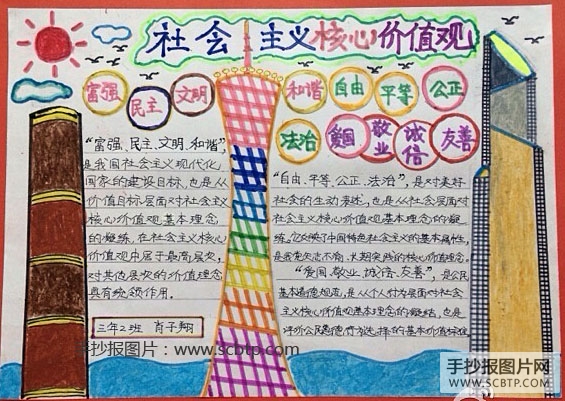 社会主义核心价值观
富强 民主 文明 和谐 自由 平等 公正
法治 爱国 敬业 诚信 友善
“富强、民主、文明、和谐”,
是我国社会主义现代化
国家的建设目标,也是从
价值目标层面对社会主义
核心价值观基本理念
的凝练,在社会主义核心
价值观中居于最高层次,
对其他层次的价值理念
具有统领作用。
三年2班 肖子翔
“自由、平等、公正、法治”,是对美好
社会的生动表述,也是从社会层面对
社会主义核心价值观基本理念的凝
练。它反映了中国特色社会主义的基本属性,
是我党矢志不渝、长期实践的核心价值理念。
“爱国、敬业、诚信、友善”,是公民
基本道德规范,是从个人行为层面对社会
主义核心价值观基本理念的凝练,也是
评价公民道德行为选择的基本价值标准
手抄报图片:www.scbtp.com
手抄报图片网
WWW.SCBTP.COM